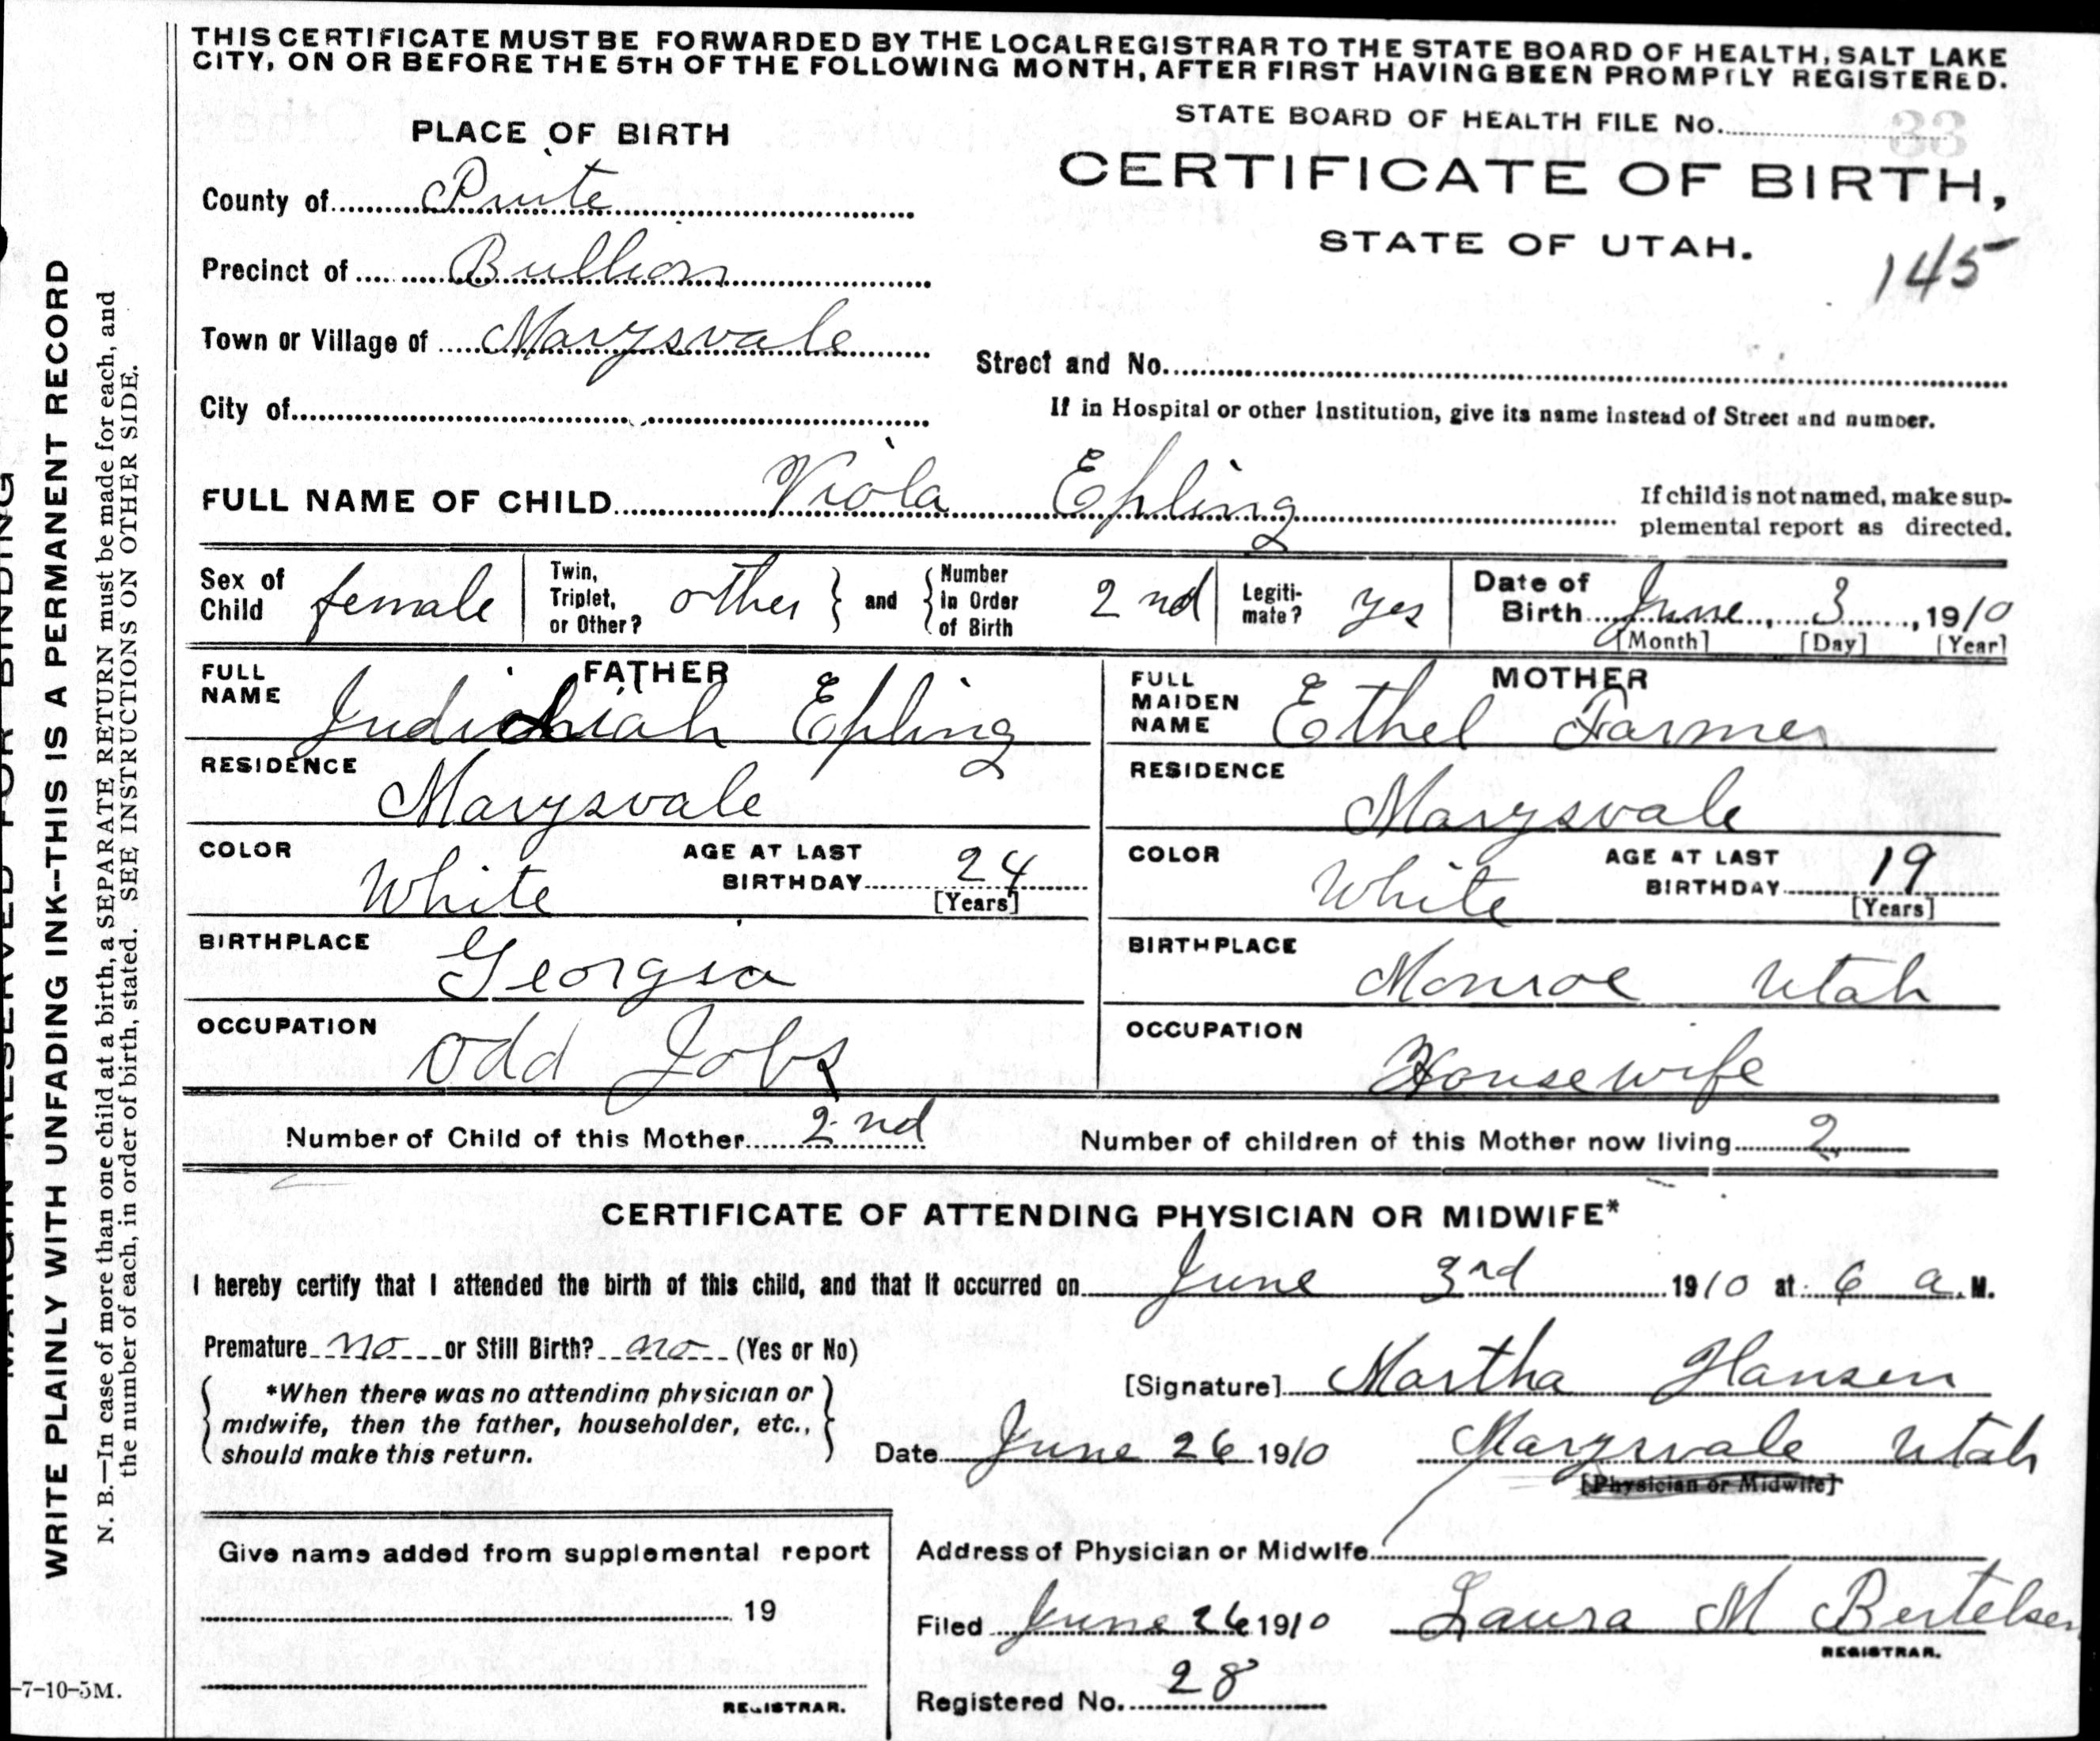 THIS CERTIFICATE MUST BE FORWARDED BY THE LOCAL REGISTRAR TO THE STATE BOARD OF HEALTH, SALT LAKE
CITY, ON OR BEFORE THE 5TH OF THE FOLLOWING MONTH, AFTER FIRST HAVING BEEN PROMPTLY REGISTERED.
STATE BOARD OF HEALTH FILE No. 33
PLACE OF BIRTH
CERTIFICATE OF BIRTH,
County of Piute
STATE OF UTAH.
145
Precinct of Bullion
Town or Village of Marysvale
Street and No.
City of
If in Hospital or other Institution, give its name instead of Street and number.
FULL NAME OF CHILD Viola Epling
If child is not named, make sup-
plemental report as directed.
Sex of Child female
Twin, Triplet, or Other? other
and
Number in Order of Birth 2nd
Legiti-mate? yes
Date of Birth June, 3, 1910
[Month] [Day] [Year]
FATHER
FULL NAME Epling
RESIDENCE
Marysvale
COLOR White
AGE AT LAST BIRTHDAY 24
[Years]
BIRTHPLACE
Georgia
OCCUPATION
Odd Jobs
MOTHER
FULL MAIDEN NAME Ethel Farmer
RESIDENCE
Marysvale
COLOR White
AGE AT LAST BIRTHDAY 19
[Years]
BIRTHPLACE
Monroe Utah
OCCUPATION
Housewife
Number of Child of this Mother 2nd
Number of children of this Mother now living 2
CERTIFICATE OF ATTENDING PHYSICIAN OR MIDWIFE*
I hereby certify that I attended the birth of this child, and that it occurred on June 3rd 1910 at 6 a.M.
Premature no or Still Birth? no (Yes or No)
[Signature] Martha Hansen
*When there was no attending physician or
midwife, then the father, householder, etc.,
should make this return.
Date June 26 1910
Marysvale Utah
[Physician or Midwife]
Give name added from supplemental report
19
REGISTRAR.
Address of Physician or Midwife
Filed June 26 1910 Laura M Bertelsen
REGISTRAR.
Registered No. 28
-7-10-5M.
MARGIN RESERVED FOR BINDING
WRITE PLAINLY WITH UNFADING INK--THIS IS A PERMANENT RECORD
N. B.—In case of more than one child at a birth, a SEPARATE RETURN must be made for each, and
the number of each, in order of birth, stated. SEE INSTRUCTIONS ON OTHER SIDE.